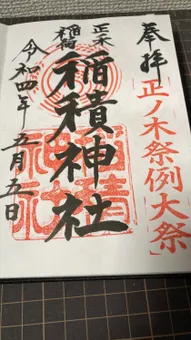 奉拝
正ノ木祭例大祭
正木
稲荷
稲積神社
令和四年五月五日